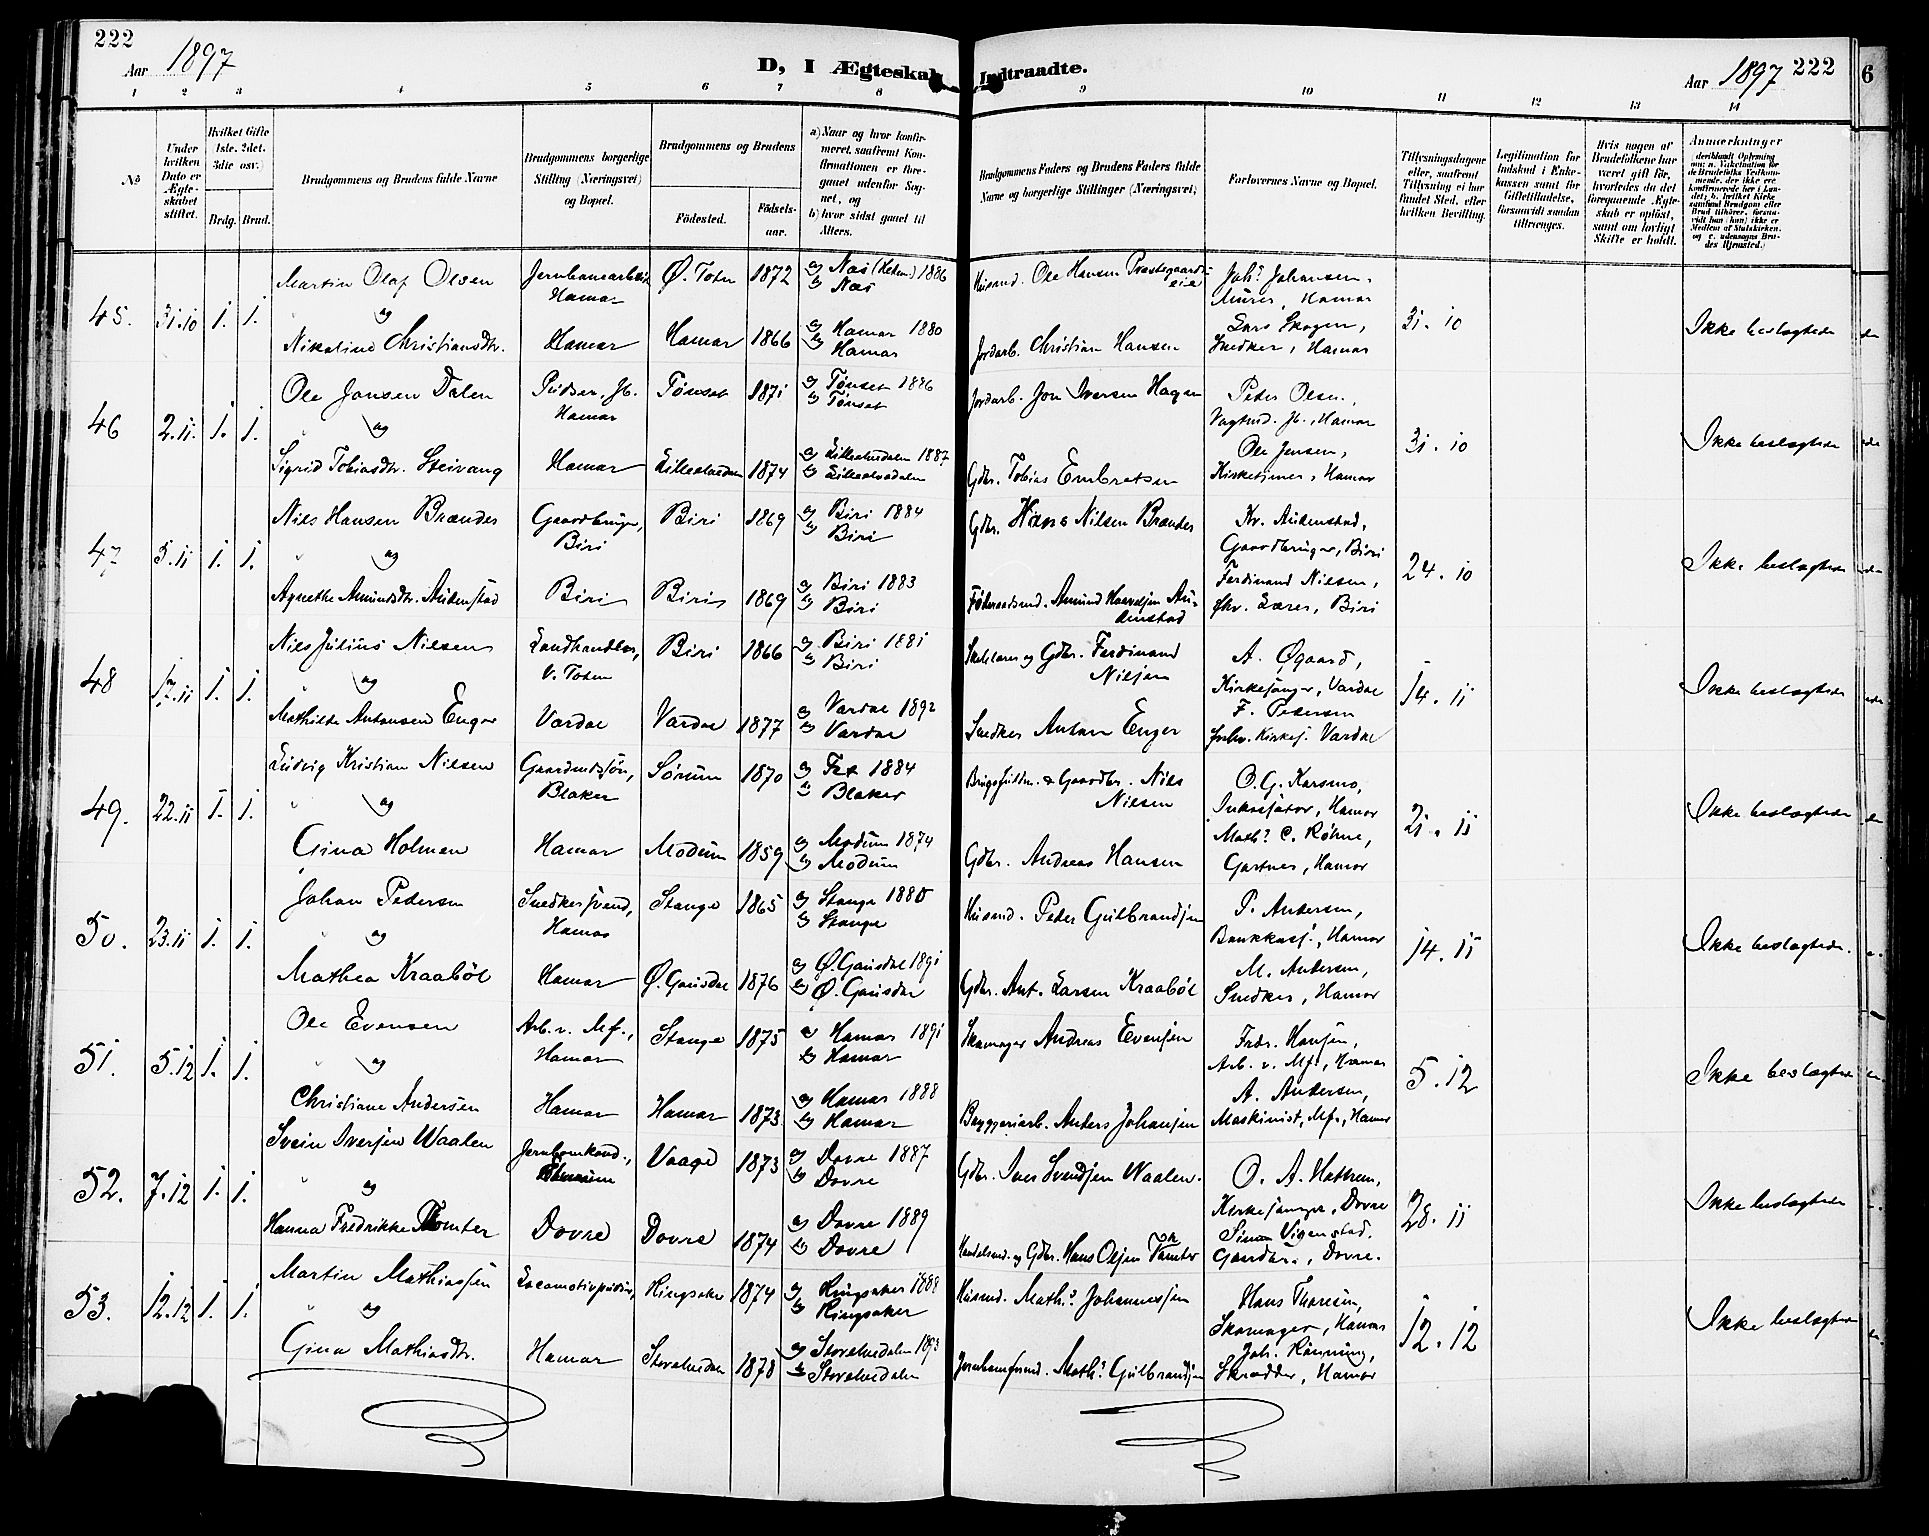 222
Aar 1897
D, I Ægteskab Indtraadte.
Aar 1897 222
6
1 2 3 4 5 6 7 8 9 10 11 12 13 14
No
Under hvilken Dato er Ægteskabet stiftet.
Hvilket Gifte 1ste. 2det. 3die osv.
Brdg. Brud.
Brudgommens og Brudens fulde Navne
Brudgommens borgerlige Stilling (Næringsvei) og Bopæl.
Brudgommens og Brudens
Födested. Födselsaar.
a) Naar og hvor konfirmeret, saafremt Konfirmationen er foregaaet udenfor Sognet, og
b) hvor sidst gaaet til Alters.
Brudgommens Faders og Brudens Faders fulde Navne og borgerlige Stillinger (Næringsvei)
Forlovernes Navne og Bopæl.
Tillysningsdagene eller, saafremt Tillysning ei har fundet Sted, efter hvilken Bevilling.
Legitimation for Indskud i Enkekassen samt for Giftetilladelse, forsaavidt saadan tiltrænges.
Hvis nogen af Brudefolkene har været gift før, hvorledes da det foregaaende Ægteskab er oplöst, samt om lovligt Skifte er holdt.
Anmærkninger
45. 31.10 1. 1.
Martin Olaf Olsen
Hamar
Ø. Toten 1872
a) Næs (Hedm.) 1886
b) Næs
Husmd. Ole Hansen Præstegaardseie
Johs. Johansen,
Murer, Hamar
31. 10
Ikke beslægtede
og
Nikoline Christiansdtr.
Hamar
Hamar 1866
a) Hamar 1880
b) Hamar
Jordarb. Christian Hansen
Lars Skogen,
Snedker, Hamar
46 2.11. 1. 1.
Ole Jonsen Dalen
Pudser, Jb.
Hamar
Tønset 1871
a) Tønset 1886
b) Tønset
Jordarb. Jon Iversen Hagen
Peder Olsen,
Vogtmd. Jb., Hamar
31. 10
Ikke beslægtede
og
Sigrid Tobiasdtr. Steivang
Hamar
Lilleelvedalen 1874
a) Lilleelvedalen 1887
b) Lilleelvedalen
Gdbr. Tobias Embretsen
Ole Jensen,
Kirketjener, Hamar
47 5.11 1. 1.
Nils Hansen Brænder
Gaardbruger,
Biri
Biri 1869
a) Biri 1884
b) Biri
Gdbr. Hans Nilsen Brænder
Kr. Audenstad,
Gaardbruger, Biri
24. 10
Ikke beslægtede
og
Agnethe Amundsdtr. Audenstad
Biri
Biri 1869
a) Biri 1883
b) Biri
Føderaadsmd. Amund Haavelsen Audenstad
Ferdinand Nilsen,
fhv. Lærer, Biri
48 17.11 1. 1.
Nils Julius Nilsen
Landhandler,
V. Toten
Biri 1866
a) Biri 1881
b) Biri
Skolelærer og Gdbr. Ferdinand
Nilsen
A. Øgaard,
Kirkesanger, Vardal
14. 11
Ikke beslægtede
og
Mathilde Antonsen Enger
Vardal
Vardal 1877
a) Vardal 1892
b) Vardal
Snedker Anton Enger
F. Pedersen
forhv. Kirkes. Vardal
49. 22.11 1. 1.
Ludvig Kristian Nilsen
Gaardmdssøn,
Blaker
Sørum 1870
a) Fet 1884
b) Blaker
Nils
Nilsen
O. G. Karsmo,
Inkassator, Hamar
21. 11
Ikke beslægtede
og
Gina Holmen
Hamar
Modum 1859
a) Modum 1874
b) Modum
Gdbr. Andreas Hansen
Maths. C. Røhne,
Gartner, Hamar
50. 23.11 1. 1.
Johan Pedersen
Snedkersvend,
Hamar
Stange 1865
a) Stange 1880
b) Stange
Husmd. Peder Gulbrandsen
P. Andersen,
Bankkass., Hamar
14. 11
Ikke beslægtede.
og
Mathea Kraabøl
Hamar
Ø. Gausdal 1876
a) Ø. Gausdal 1891
b) Ø. Gausdal
Gdbr. Ant. Larsen Kraabøl
M. Andersen,
Snedker, Hamar
51. 5.12 1. 1.
Ole Evensen
Arb. v. Mf.,
Hamar
Stange 1875
a) Hamar 1891
b) Hamar
Skomager Andreas Evensen
Fredr. Hansen,
Arb. v. Mf., Hamar
5. 12
Ikke beslægtede
og
Christiane Andersen
Hamar
Hamar 1873
a) Hamar 1888
b) Hamar
Bryggeriarb. Anders Johansen
A. Andersen,
Maskinist, Mf., Hamar
52. 7.12 1. 1.
Svein Iversen Waalen
Vaage 1873
a) Dovre 1887
b) Dovre
Gdbr. Iver Svendsen Waalen.
O. A. Hattrem,
Kirkesanger, Dovre
28. 11
Ikke beslægtede
og
Hanna Fredrikke Tomter
Dovre
Dovre 1874
a) Dovre 1889
b) Dovre
Handelsmd. og Gdbr. Hans Olsen Tomter
Simon Vigenstad.
Gaardbr., Dovre.
53. 12.12 1. 1.
Martin Mathiassen
Locomotivpudser,
Ringsaker 1874
a) Ringsaker 1888
b) Ringsaker
Husmd. Maths. Johannessen
Hans Thoresen,
Skomager, Hamar
12. 12
Ikke beslægtede
og
Gina Mathiasdtr.
Hamar
Storelvedalen 1878
a) Storelvedalen 1893
b) Storelvedalen
Maths. Gulbrandsen
Joh. Rønning,
Skrædder, Hamar